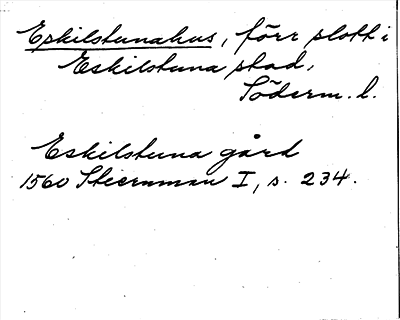 Eskilstunahus, förr slott i
Eskilstuna stad,
Söderm. l.
Eskilstuna gård
1560 Stiernman I, s. 234.